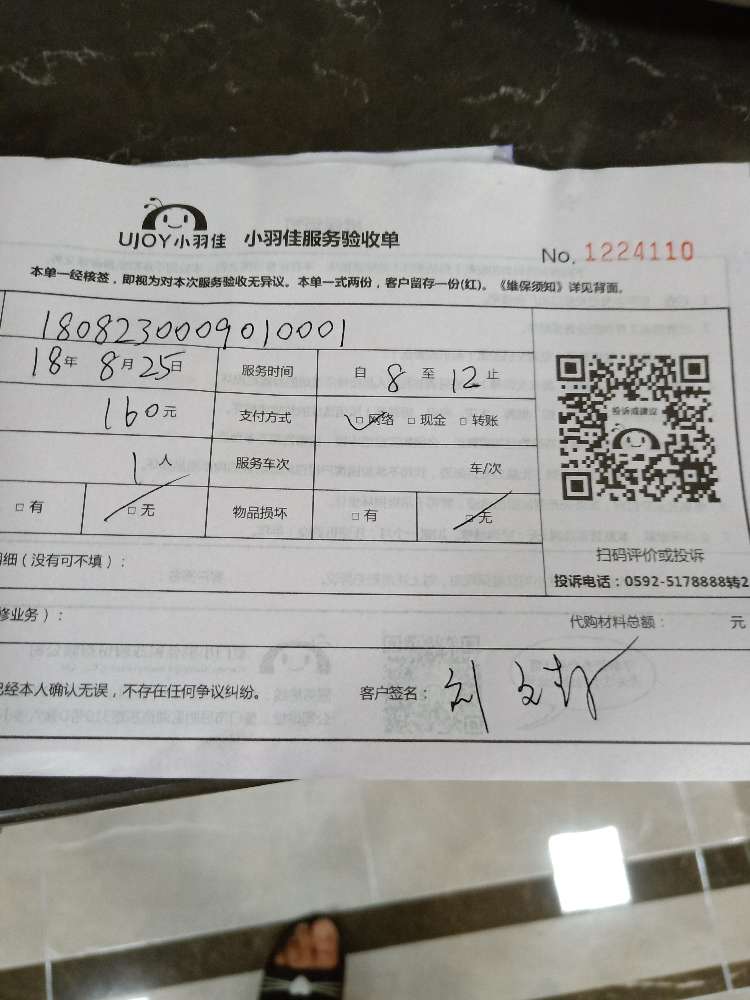 UJOY小羽佳 小羽佳服务验收单
No. 1224110
本单一经核签，即视为对本次服务验收无异议。本单一式两份，客户留存一份(红)。《维保须知》详见背面。
1808230009010001
18年 8月25日 服务时间 自 8 至 12 止
160元 支付方式 □网络 □现金 □转账
投诉或建议
1人 服务车次 车/次
□有 □无 物品损坏 □有 □无
扫码评价或投诉
明细（没有可不填）：
投诉电话：0592-5178888转2
修业务）： 代购材料总额： 元
已经本人确认无误，不存在任何争议纠纷。 客户签名：